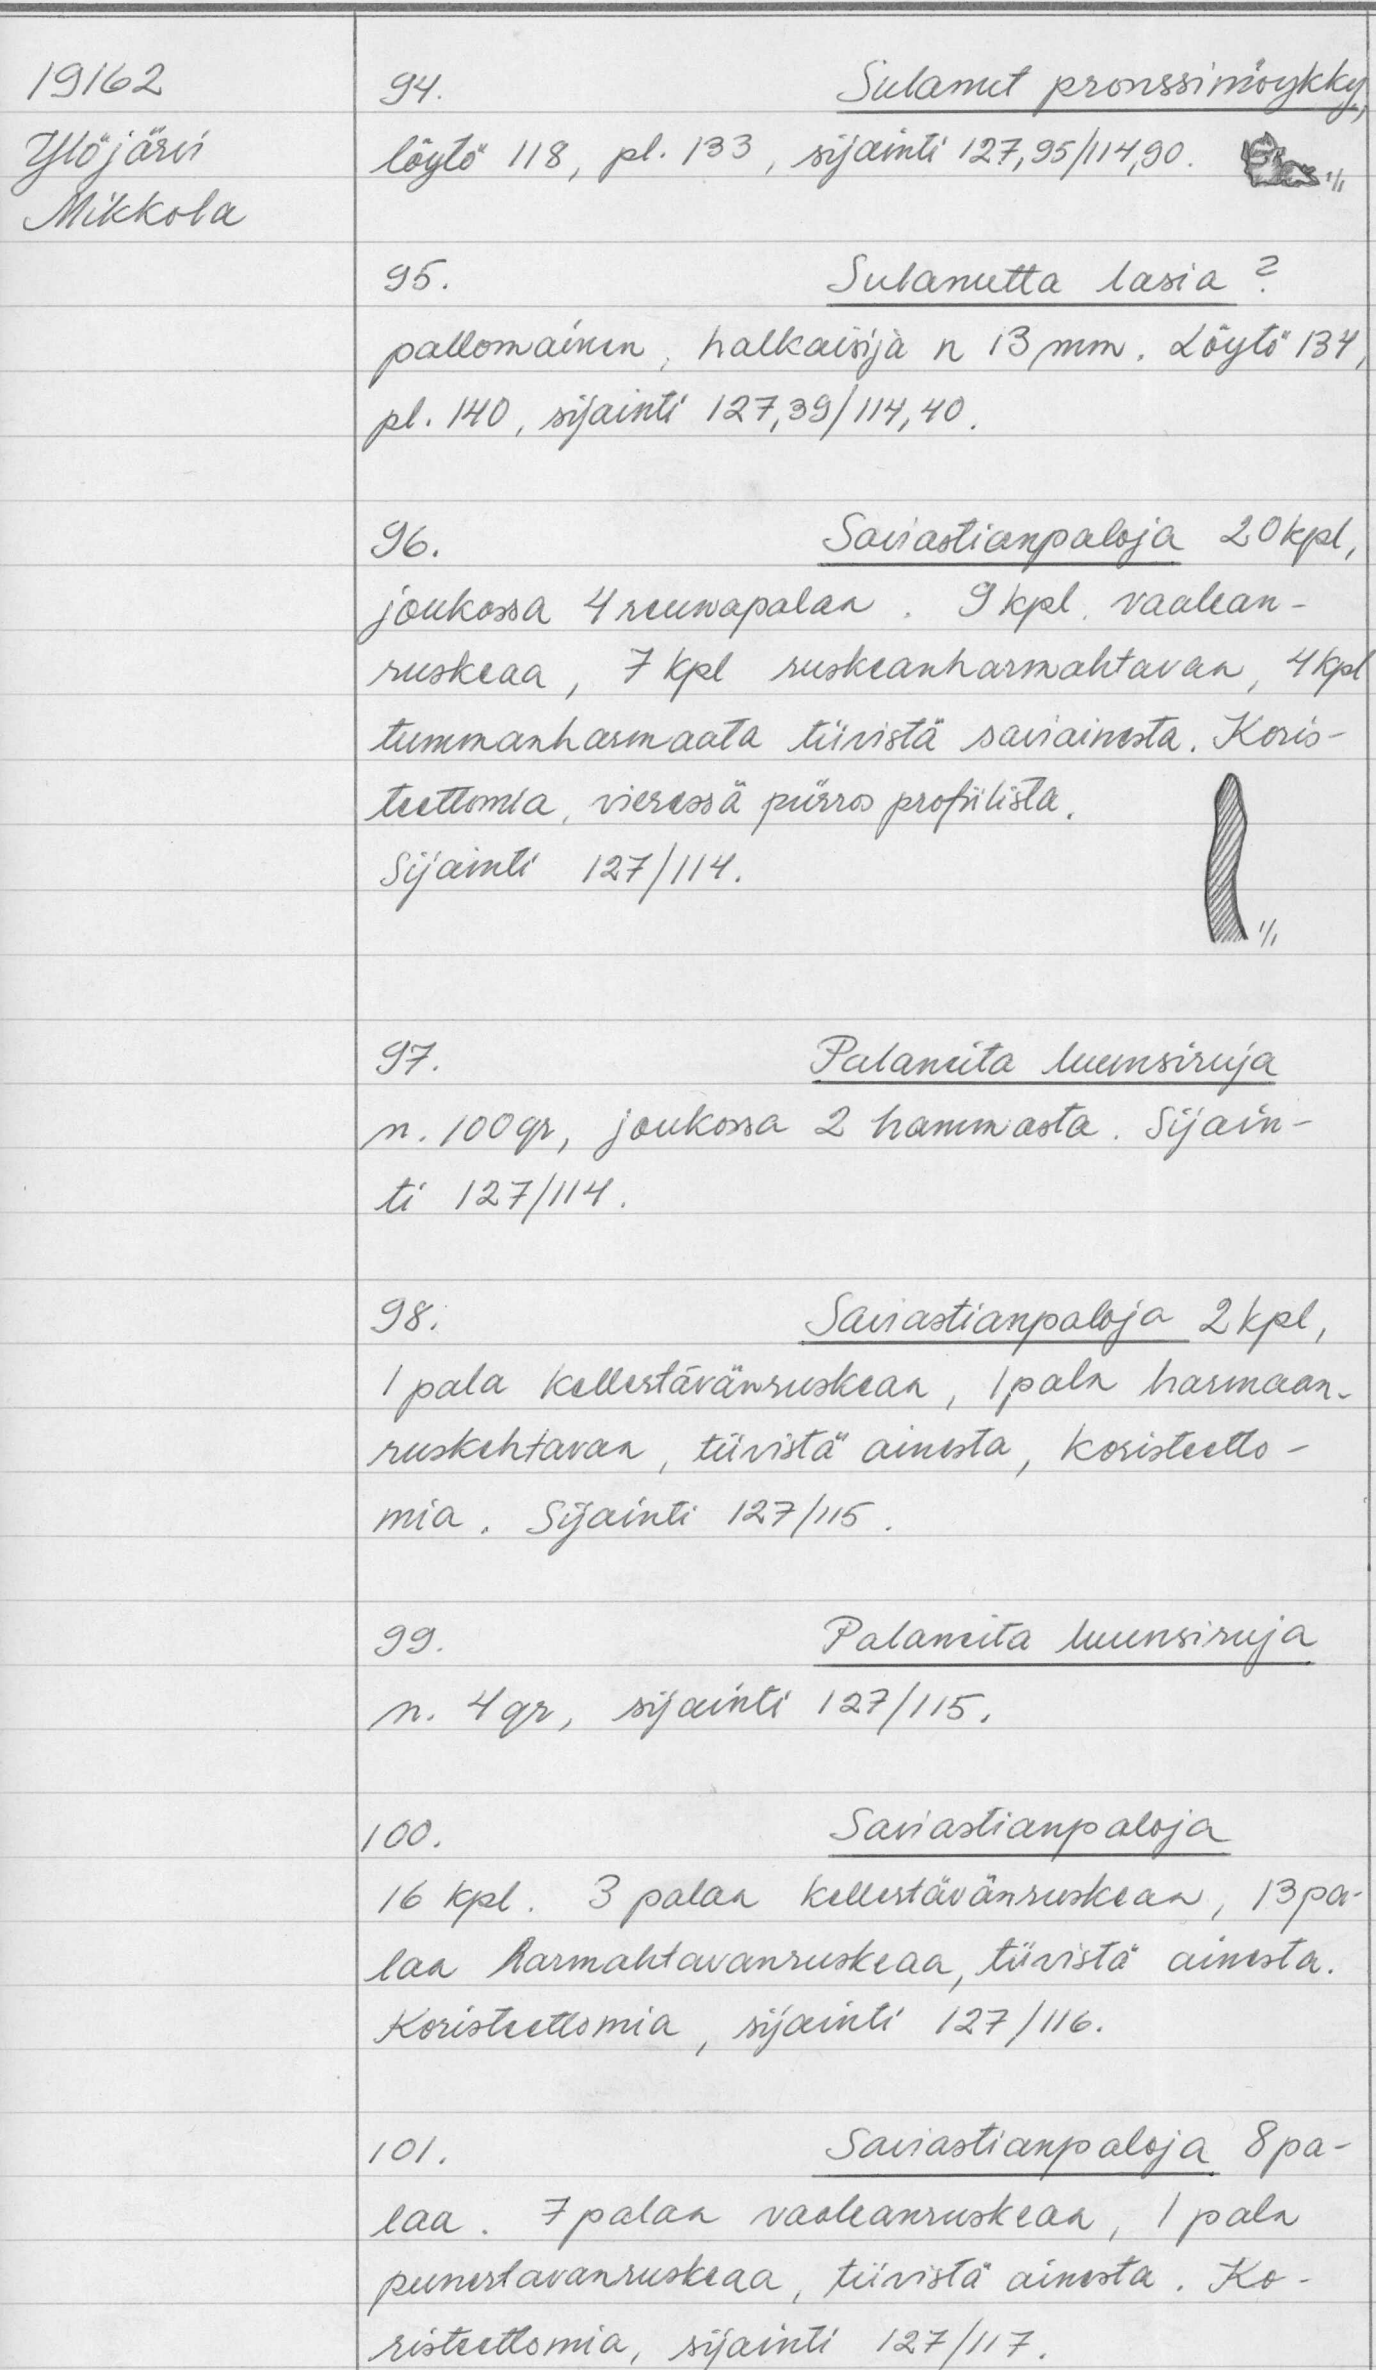 19162
Ylöjärvi
Mikkola
94. Sulanut pronssimöykky,
löytö 118, pl. 133, sijainti 127,95/114,90.
1/1
95. Sulanutta lasia?
pallomainen, halkaisija n 13 mm. Löytö 134,
pl. 140, sijainti 127,39/114,40.
96. Saviastianpaloja 20 kpl,
joukossa 4 reunapalaa. 9 kpl. vaalean-
ruskeaa, 7 kpl ruskeanharmahtavaa, 4 kpl
tummanharmaata tiivistä saviainesta. Koris-
teettomia, vieressä piirros profiilista.
Sijainti 127/114.
1/1
97. Palaneita luunsiruja
n. 100 gr, joukossa 2 hammasta. Sijain-
ti 127/114.
98. Saviastianpaloja 2 kpl,
1 pala kellertävänruskeaa, 1 pala harmaan-
ruskehtavaa, tiivistä ainesta, koristeetto-
mia. Sijainti 127/115.
99. Palaneita luunsiruja
n. 4 gr, sijainti 127/115.
100. Saviastianpaloja
16 kpl. 3 palaa kellertävänruskeaa, 13 pa-
laa harmahtavanruskeaa, tiivistä ainesta.
Koristeettomia, sijainti 127/116.
101. Saviastianpaloja 8 pa-
laa. 7 palaa vaaleanruskeaa, 1 pala
punertavanruskeaa, tiivistä ainesta. Ko-
risteettomia, sijainti 127/117.